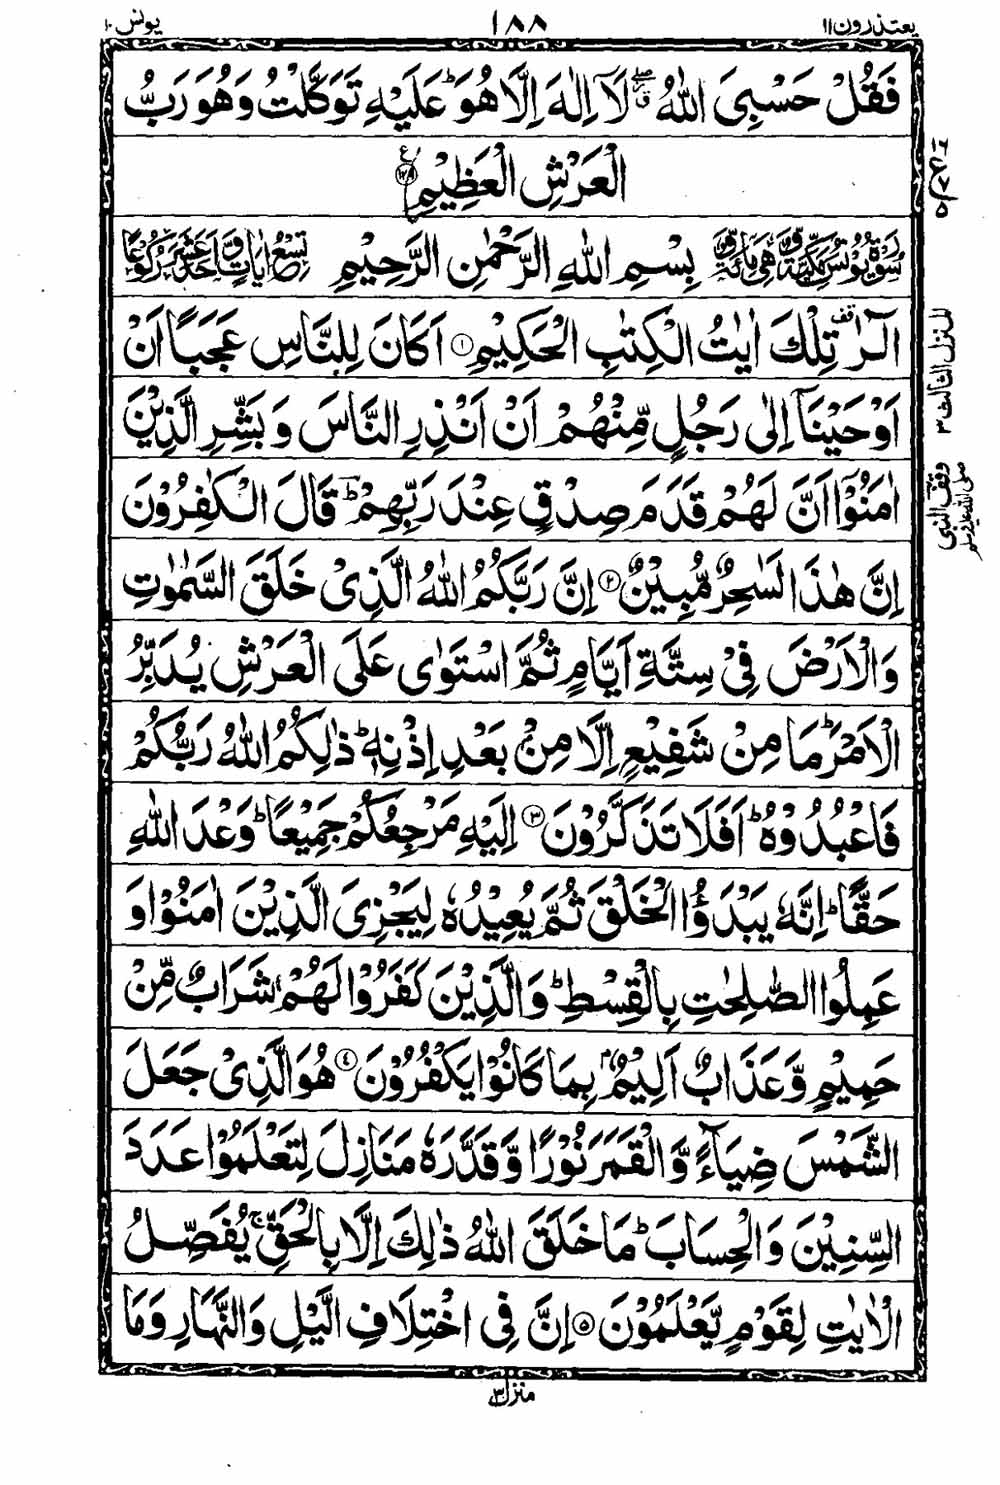 یعتذرون ۱۱
۱۸۸
یونس ۱۰
فَقُلْ حَسْبِیَ اللّٰهُ ۖ لَاۤ اِلٰهَ اِلَّا هُوَ ؕ عَلَیْهِ تَوَكَّلْتُ وَهُوَ رَبُّ
الْعَرْشِ الْعَظِیْمِ ۝۱۲۹
سُوْرَةُ یُوْنُسَ مَكِّیَّةٌ وَّهِیَ مِائَةٌ وَّ بِسْمِ اللّٰهِ الرَّحْمٰنِ الرَّحِیْمِ تِسْعُ اٰیَاتٍ وَّاَحَدَ عَشَرَ رُكُوْعًا
الٓرٰ ࣞ تِلْكَ اٰیٰتُ الْكِتٰبِ الْحَكِیْمِ ۝۱ اَكَانَ لِلنَّاسِ عَجَبًا اَنْ
اَوْحَیْنَاۤ اِلٰى رَجُلٍ مِّنْهُمْ اَنْ اَنْذِرِ النَّاسَ وَ بَشِّرِ الَّذِیْنَ
اٰمَنُوْۤا اَنَّ لَهُمْ قَدَمَ صِدْقٍ عِنْدَ رَبِّهِمْ ؕ قَالَ الْكٰفِرُوْنَ
اِنَّ هٰذَا لَسٰحِرٌ مُّبِیْنٌ ۝۲ اِنَّ رَبَّكُمُ اللّٰهُ الَّذِیْ خَلَقَ السَّمٰوٰتِ
وَالْاَرْضَ فِیْ سِتَّةِ اَیَّامٍ ثُمَّ اسْتَوٰى عَلَى الْعَرْشِ یُدَبِّرُ
الْاَمْرَ ؕ مَا مِنْ شَفِیْعٍ اِلَّا مِنْۢ بَعْدِ اِذْنِهٖ ؕ ذٰلِكُمُ اللّٰهُ رَبُّكُمْ
فَاعْبُدُوْهُ ؕ اَفَلَا تَذَكَّرُوْنَ ۝۳ اِلَیْهِ مَرْجِعُكُمْ جَمِیْعًا ؕ وَعْدَ اللّٰهِ
حَقًّا ؕ اِنَّهٗ یَبْدَؤُا الْخَلْقَ ثُمَّ یُعِیْدُهٗ لِیَجْزِیَ الَّذِیْنَ اٰمَنُوْا وَ
عَمِلُوا الصّٰلِحٰتِ بِالْقِسْطِ ؕ وَالَّذِیْنَ كَفَرُوْا لَهُمْ شَرَابٌ مِّنْ
حَمِیْمٍ وَّ عَذَابٌ اَلِیْمٌۢ بِمَا كَانُوْا یَكْفُرُوْنَ ۝۴ هُوَ الَّذِیْ جَعَلَ
الشَّمْسَ ضِیَآءً وَّ الْقَمَرَ نُوْرًا وَّ قَدَّرَهٗ مَنَازِلَ لِتَعْلَمُوْا عَدَدَ
السِّنِیْنَ وَ الْحِسَابَ ؕ مَا خَلَقَ اللّٰهُ ذٰلِكَ اِلَّا بِالْحَقِّ ۚ یُفَصِّلُ
الْاٰیٰتِ لِقَوْمٍ یَّعْلَمُوْنَ ۝۵ اِنَّ فِی اخْتِلَافِ الَّیْلِ وَ النَّهَارِ وَ مَا
المنزل الثالث ۳
وقف النبی صلی اللہ علیہ وسلم
منزل ۳